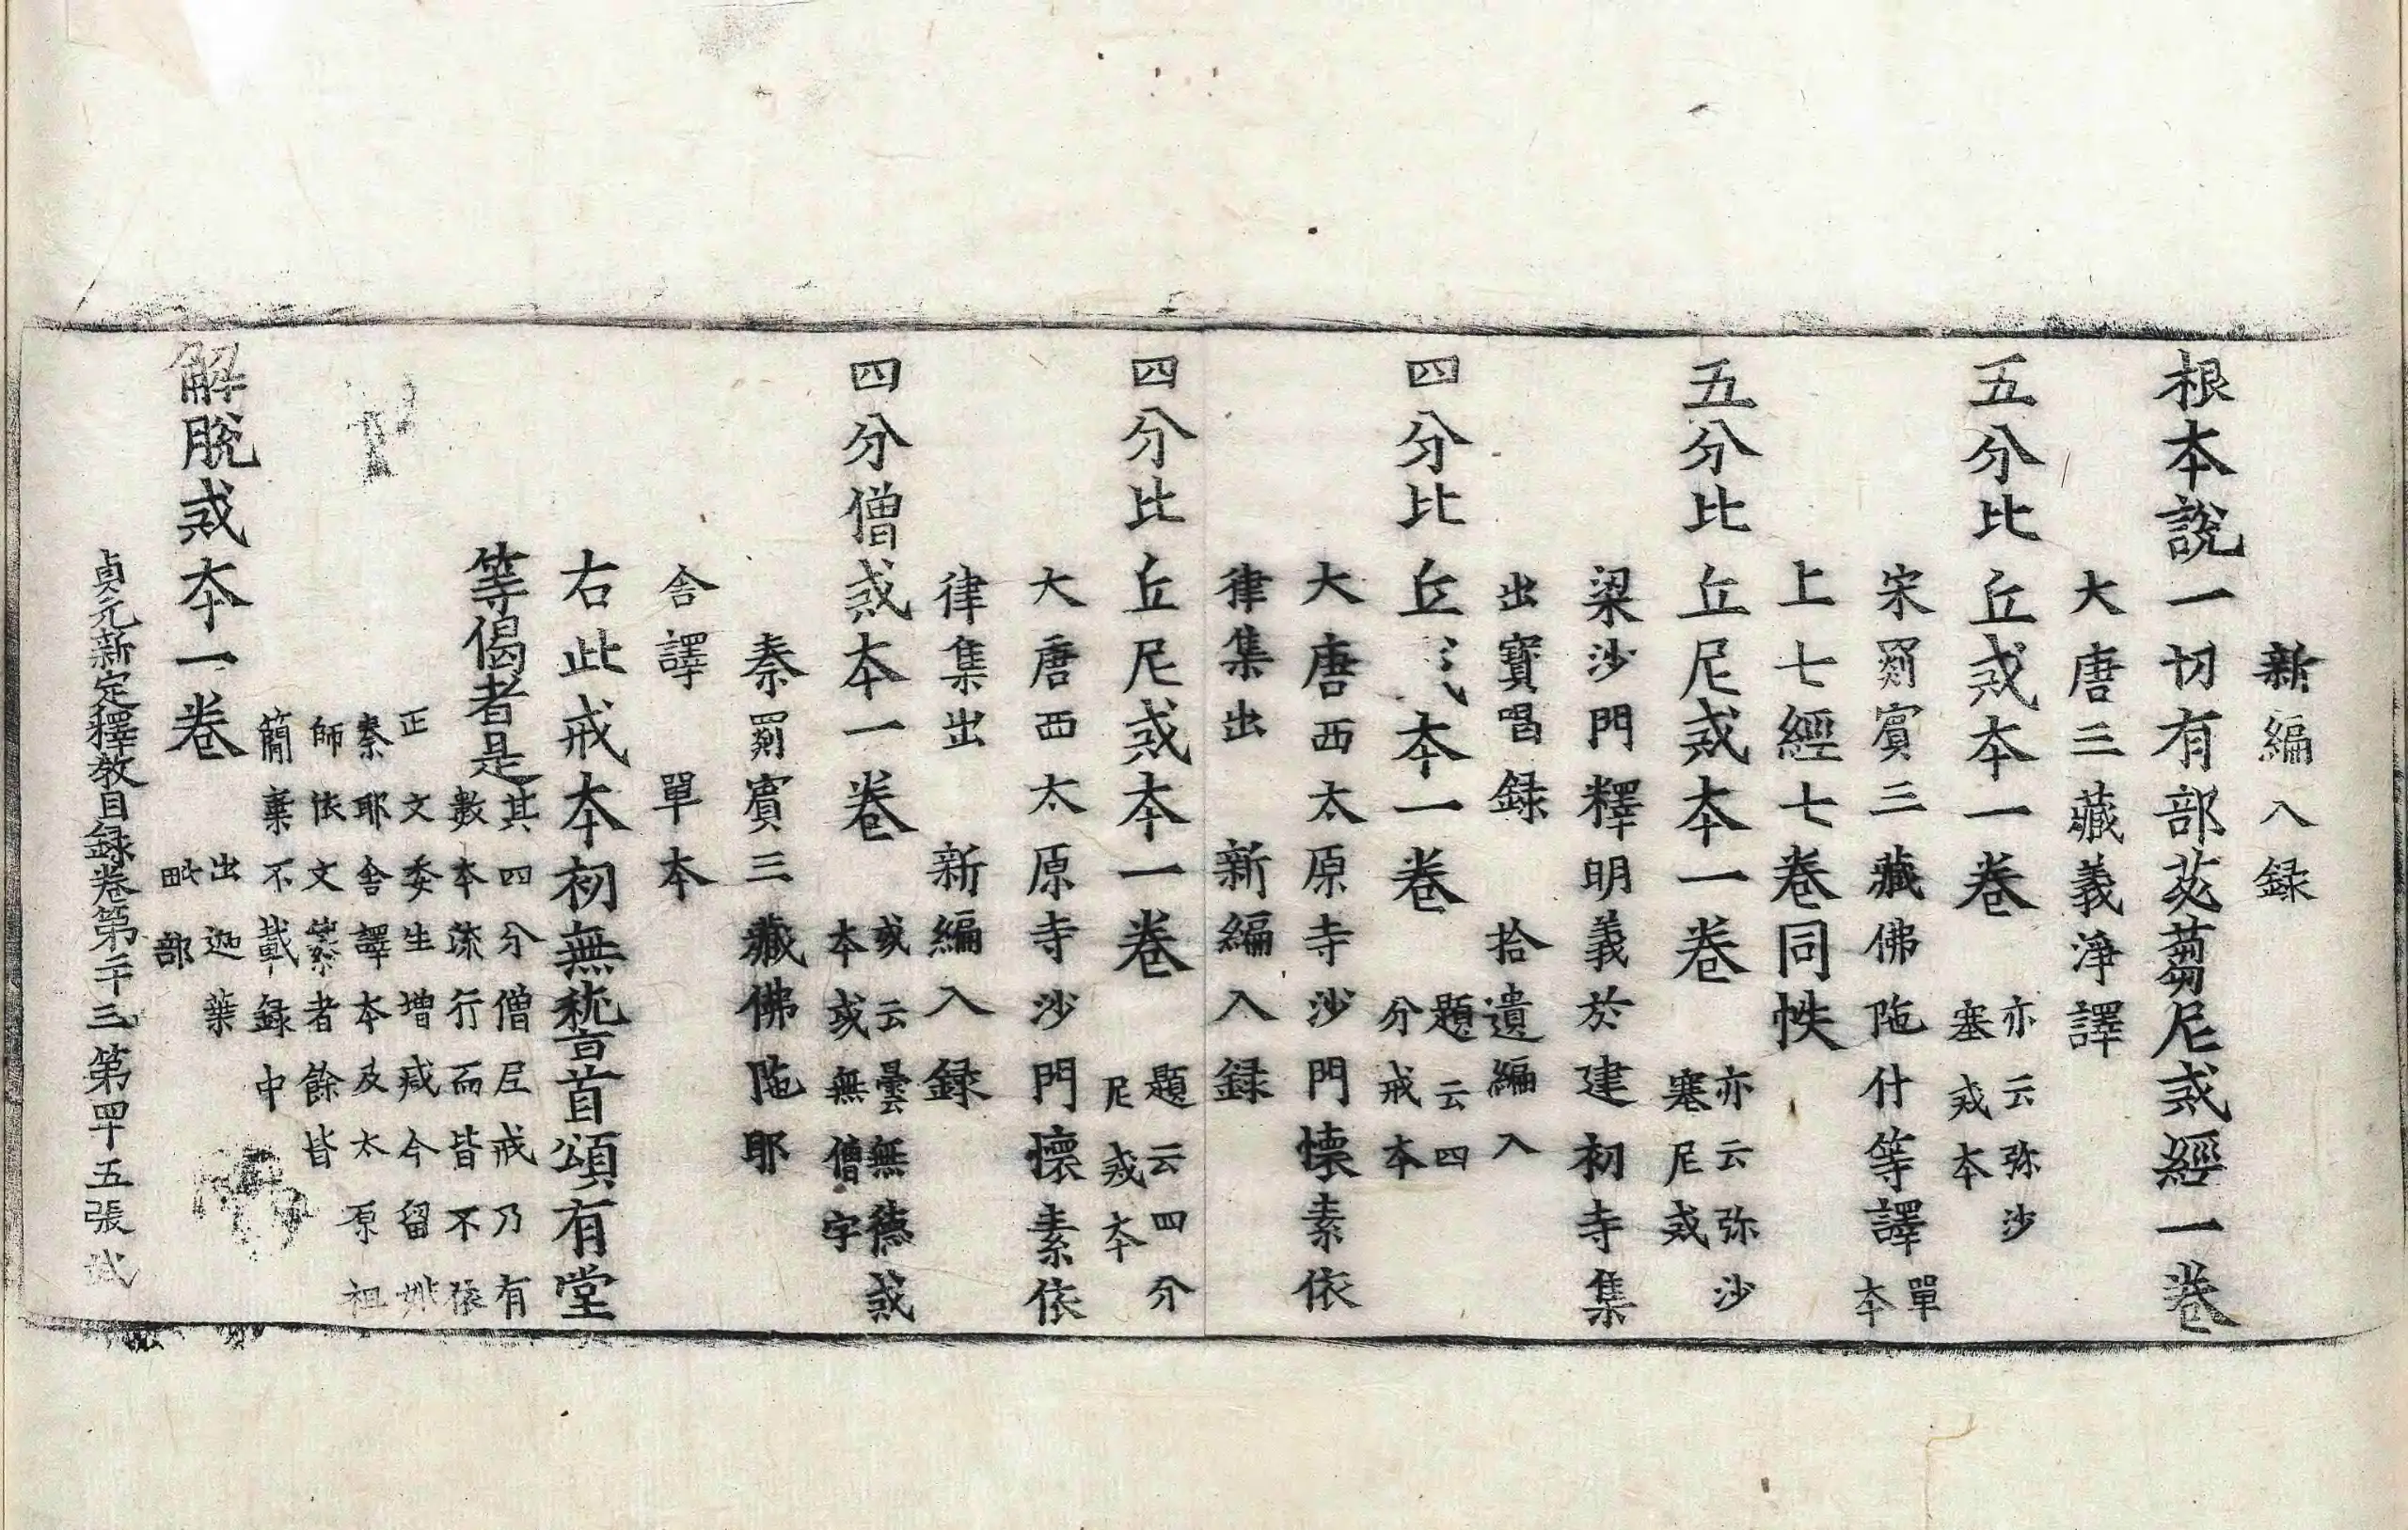 新編入録
根本說一切有部苾蒭尼戒經一卷
大唐三藏義淨譯
五分比丘戒本一卷 亦云弥沙塞戒本
宋罽賔三藏佛陁什等譯 單本
上七經七卷同帙
五分比丘尼戒本一卷 亦云弥沙塞尼戒
梁沙門釋明義於建初寺集
出寶唱録 拾遺編入
四分比丘戒本一卷 題云四分戒本
大唐西太原寺沙門懷素依
律集出 新編入録
四分比丘尼戒本一卷 題云四分尼戒本
大唐西太原寺沙門懷素依
律集出 新編入録
四分僧戒本一卷 或云曇無德戒本或無僧字
秦罽賔三藏佛陁耶
舎譯 單本
右此戒本初無𥡳首頌有堂
等偈者是
其四分僧尼戒乃有
數本流行而皆不依
正文委生增减今留姚
秦耶舎譯本及太原祖
師依文纂者餘皆
簡棄不載録中
解脫戒本一卷
出迦葉
毗部
貞元新定釋教目録卷第二十三 第四十五張 武